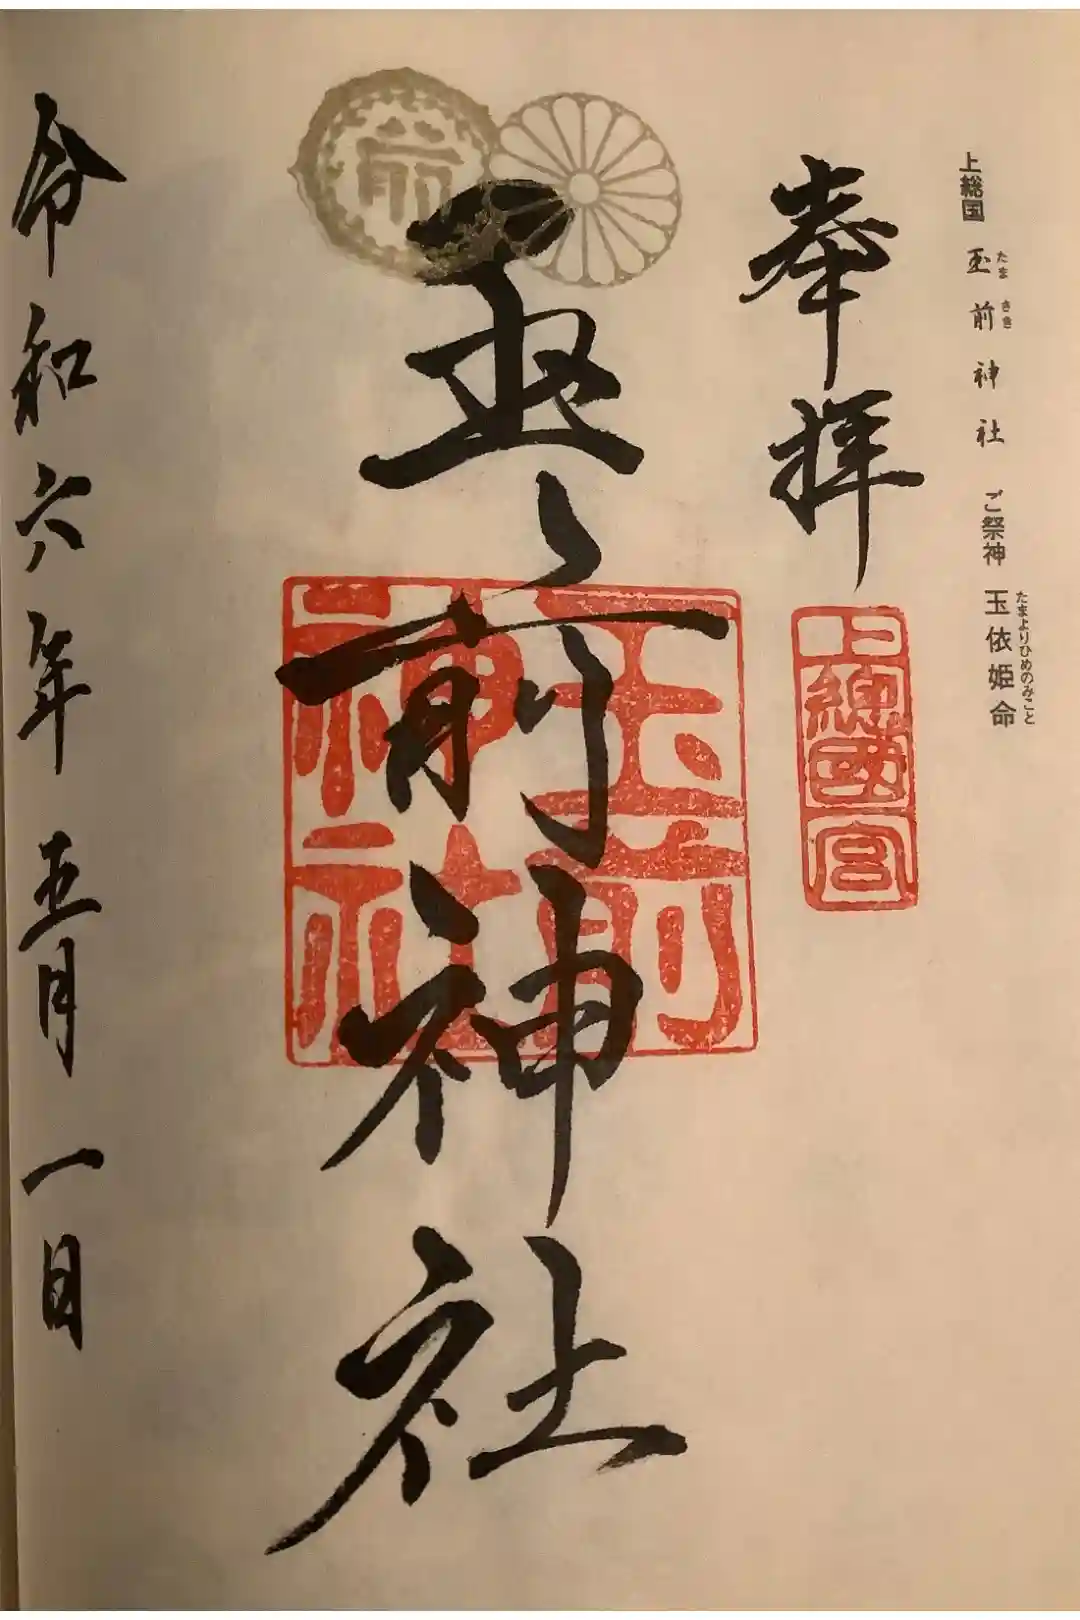 上総国 玉前神社 ご祭神 玉依姫命
たま さき
たまよりひめのみこと
奉拝
上總國一宮
玉前神社
玉前神社
前
令和六年五月一日